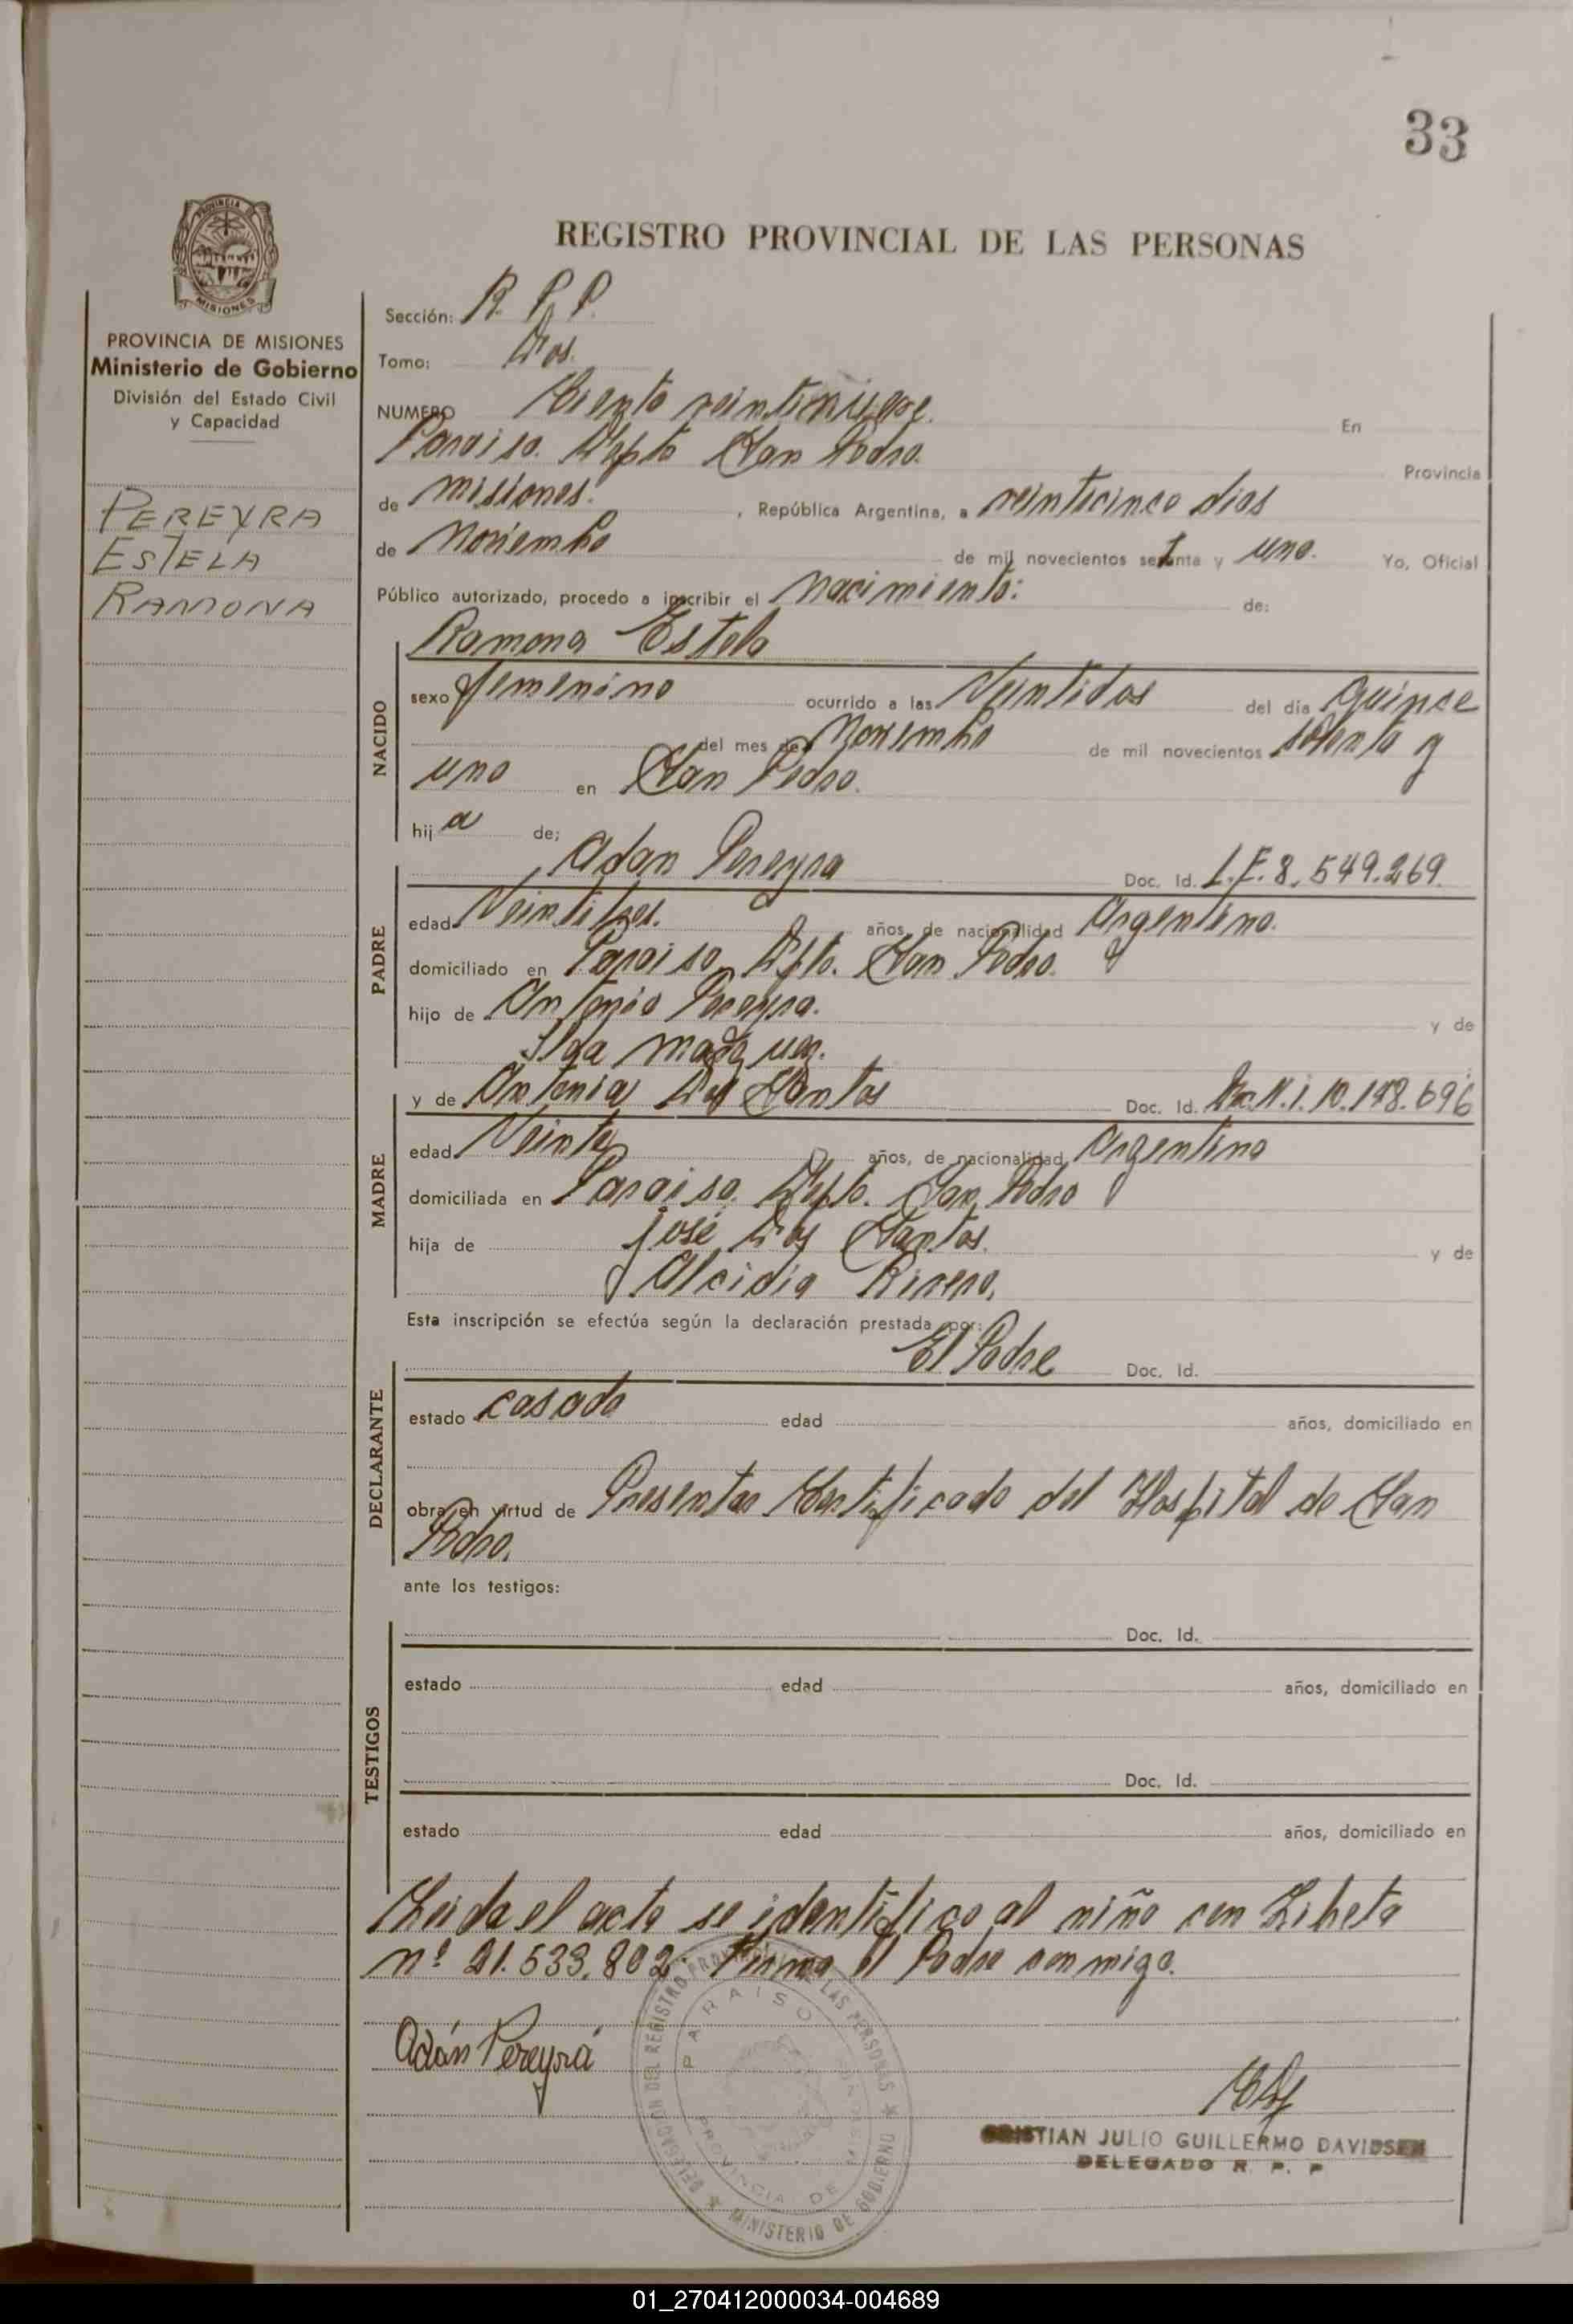 33
PROVINCIA
MISIONES
REGISTRO PROVINCIAL DE LAS PERSONAS
PROVINCIA DE MISIONES
Ministerio de Gobierno
División del Estado Civil
y Capacidad
PEREYRA
ESTELA
RAMONA
Sección: R. P. P.
Tomo: Dos.
NUMERO Ciento veintinueve. En
Paraiso. Depto San Pedro. Provincia
de Misiones. , República Argentina, a veinticinco dias
de Noviembre de mil novecientos setenta y uno. Yo, Oficial
Público autorizado, procedo a inscribir el Nacimiento: de:
NACIDO
Ramona Estela
sexo femenino ocurrido a las Veintidos del día quince
del mes de Noviembre de mil novecientos setenta y
uno en San Pedro.
hij a de;
PADRE
Adan Pereyra Doc. Id. L.E. 8.549.269.
edad Veintitres. años, de nacionalidad Argentino.
domiciliado en Paraiso Dpto. San Pedro.
hijo de Antonio Pereyra. y de
MADRE
y de Antonia Dos Santos Doc. Id. 10.198.696
edad Veinte años, de nacionalidad Argentina
domiciliada en Paraiso. Depto. San Pedro
hija de José Dos Santos. y de
Alcidia
Esta inscripción se efectúa según la declaración prestada por:
DECLARANTE
El Padre Doc. Id.
estado casado edad años, domiciliado en
obra en virtud de Presentar Certificado del Hospital de San
Pedro.
ante los testigos:
TESTIGOS
Doc. Id.
estado edad años, domiciliado en
Doc. Id.
estado edad años, domiciliado en
Leida el acta se identifico al niño con Libeta
nº 21.533.802. Firma el Padre conmigo.
Adán Pereyra
DELEGACION DEL REGISTRO PROVINCIAL DE LAS PERSONAS
MINISTERIO DE GOBIERNO
PARAISO
PROVINCIA DE MISIONES
CRISTIAN JULIO GUILLERMO DAVIDSEN
DELEGADO R. P. P
01_270412000034-004689